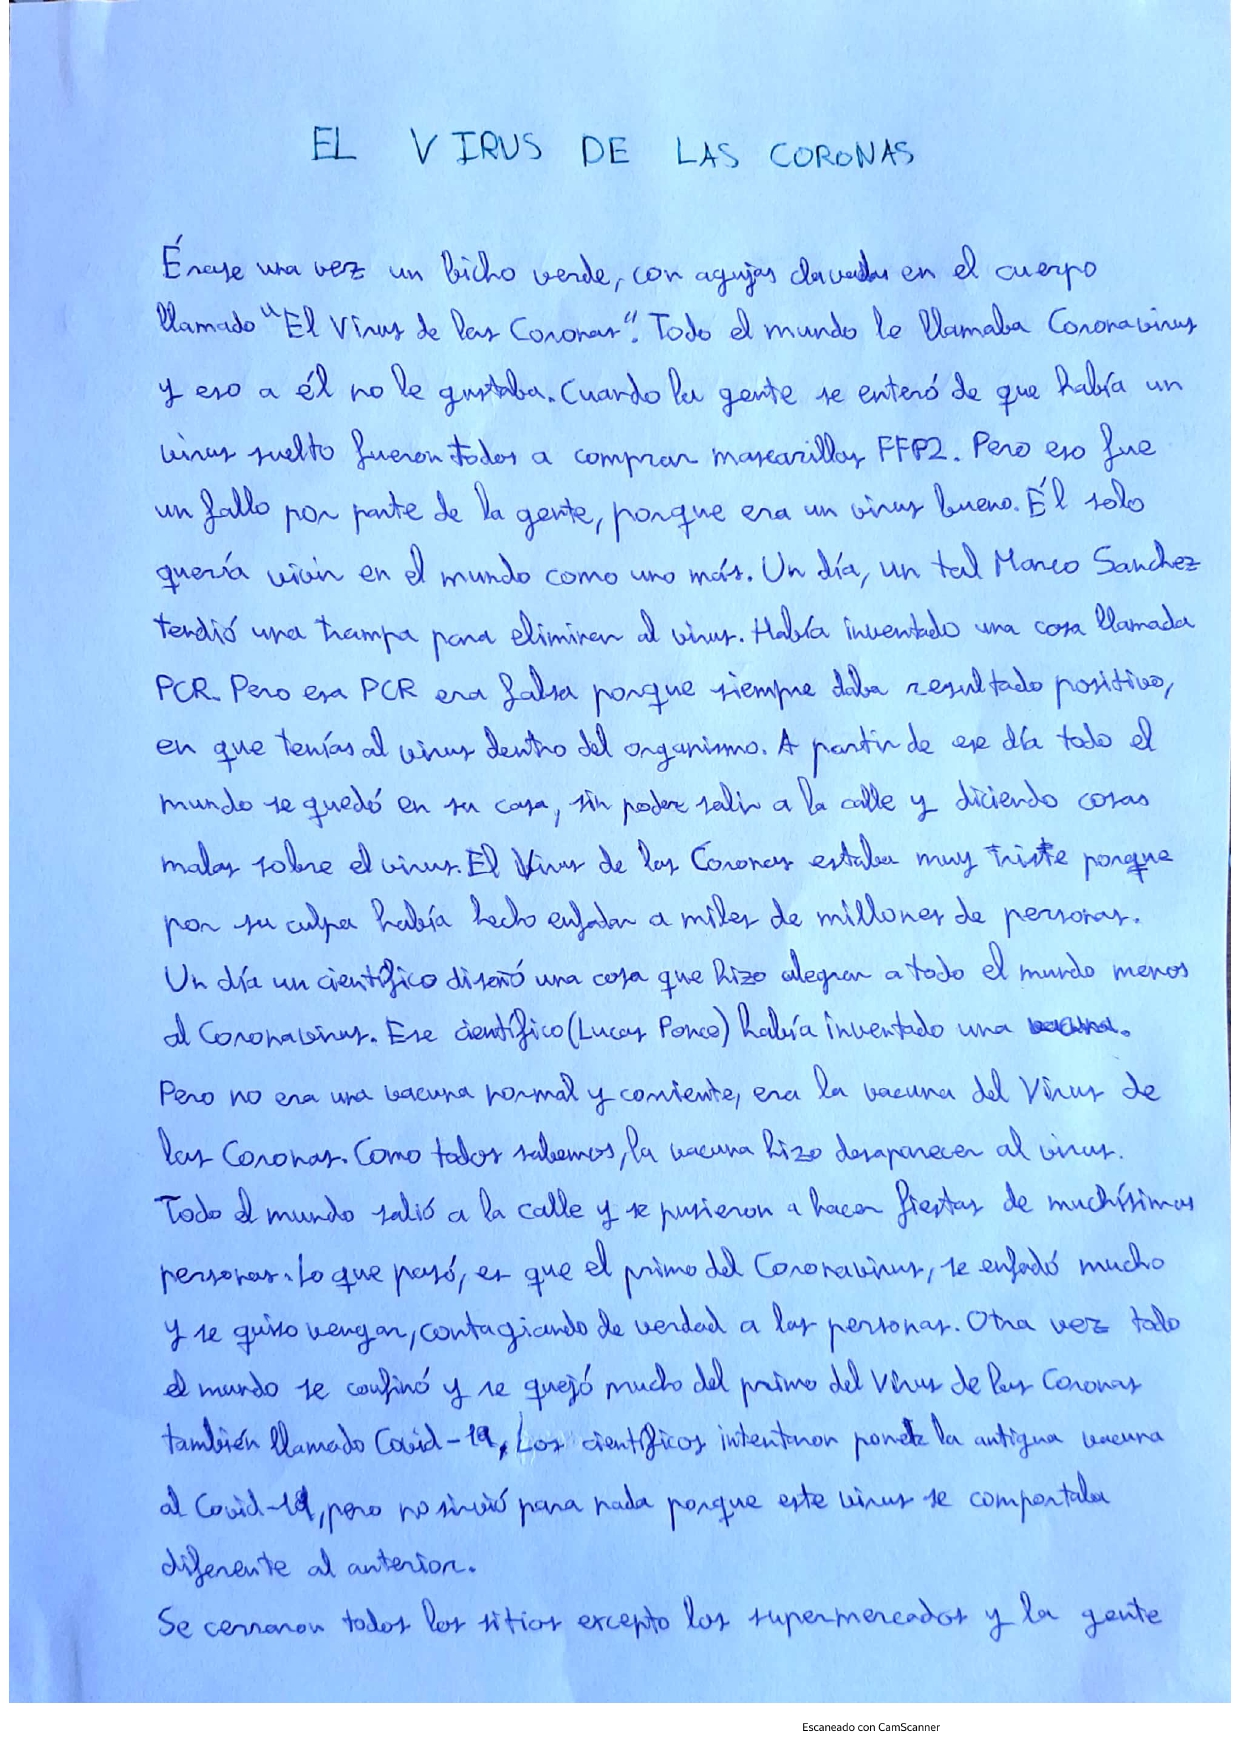 EL VIRUS DE LAS CORONAS
Érase una vez un bicho verde, con agujas clavadas en el cuerpo
llamado "El Virus de las Coronas". Todo el mundo le llamaba Coronavirus
y eso a él no le gustaba. Cuando la gente se enteró de que había un
virus suelto fueron todos a comprar mascarillas FFP2. Pero eso fue
un fallo por parte de la gente, porque era un virus bueno. Él solo
quería vivir en el mundo como uno más. Un día, un tal Marco Sanchez
tendió una trampa para eliminar al virus. Había inventado una cosa llamada
PCR. Pero esa PCR era falsa porque siempre daba resultado positivo,
en que tenías al virus dentro del organismo. A partir de ese día todo el
mundo se quedó en su casa, sin poder salir a la calle y diciendo cosas
malas sobre el virus. El Virus de las Coronas estaba muy triste porque
por su culpa había hecho enfadar a miles de millones de personas.
Un día un científico diseñó una cosa que hizo alegrar a todo el mundo menos
al Coronavirus. Ese científico (Lucas Ponce) había inventado una vacuna.
Pero no era una vacuna normal y corriente, era la vacuna del Virus de
las Coronas. Como todos sabemos, la vacuna hizo desaparecer al virus.
Todo el mundo salió a la calle y se pusieron a hacer fiestas de muchísimas
personas. Lo que pasó, es que el primo del Coronavirus, se enfadó mucho
y se quiso vengar, contagiando de verdad a las personas. Otra vez todo
el mundo se confinó y se quejó mucho del primo del Virus de las Coronas
también llamado Covid-19. Los científicos intentaron poner la antigua vacuna
al Covid-19, pero no sirvió para nada porque este virus se comportaba
diferente al anterior.
Se cerraron todos los sitios excepto los supermercados y la gente
Escaneado con CamScanner